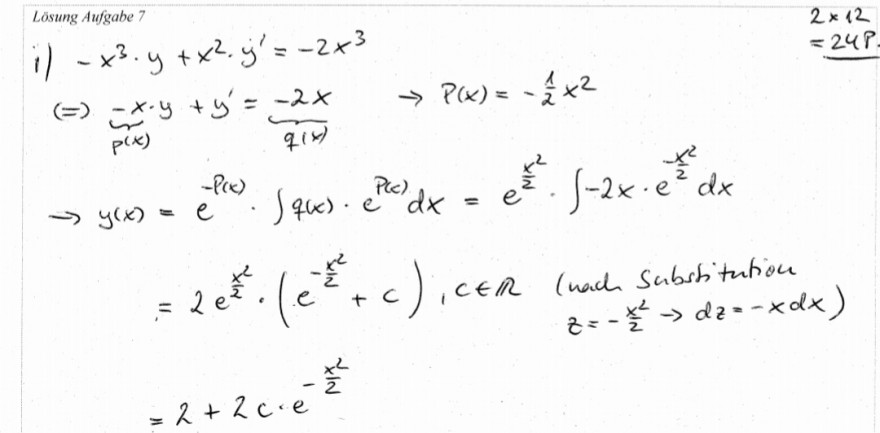 Lösung Aufgabe 7
2 × 12
= 24 P.
i) - x³ · y + x² · y' = - 2x³
(=) - x · y + y' = - 2x → P(x) = - 1/2 x²
p(x) q(x)
→ y(x) = e^(-P(x)) · ∫ q(x) · e^(P(x)) dx = e^(x²/2) · ∫ - 2x · e^(-x²/2) dx
= 2 e^(x²/2) · (e^(-x²/2) + c), c ∈ ℝ (nach Substitution
z = - x²/2 → dz = - x dx)
= 2 + 2 c · e^(- x²/2)